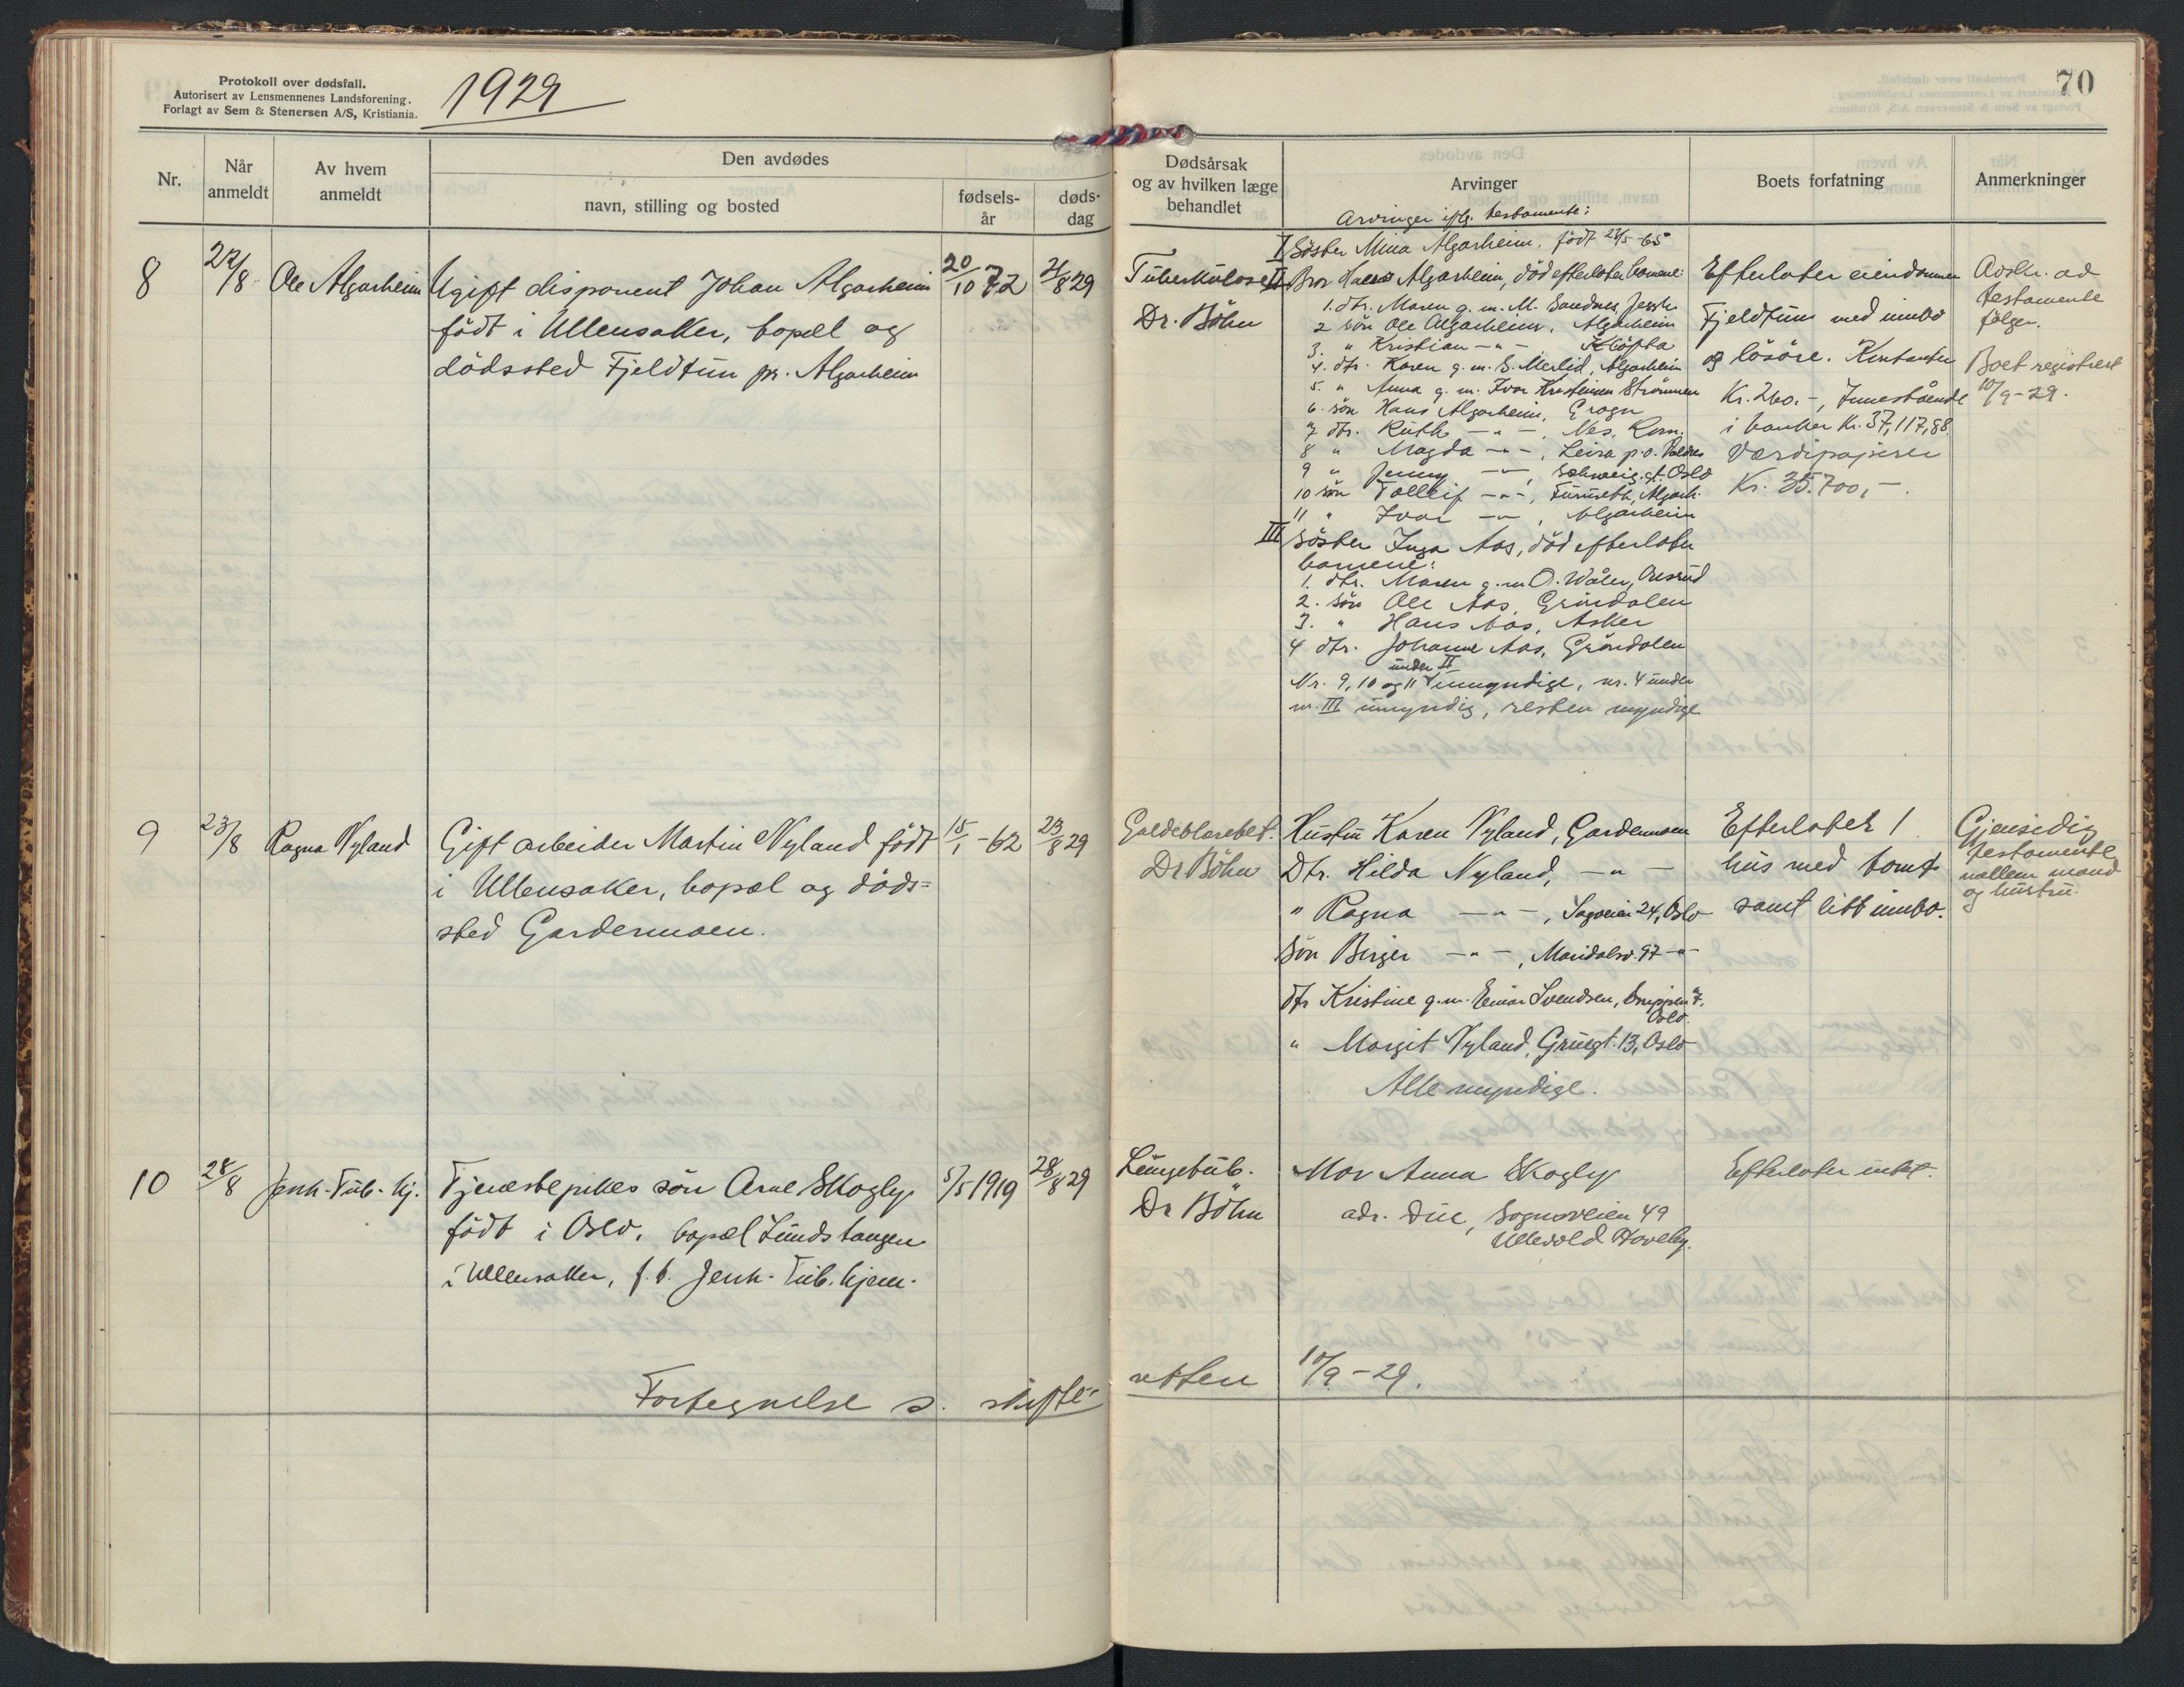 Protokoll over dødsfall.
Autorisert av Lensmennenes Landsforening.
Forlagt av Sem & Stenersen A/S, Kristiania.
1929
Nr.
Når anmeldt
Av hvem anmeldt
Den avdødes
navn, stilling og bosted
fødsels-år
døds-dag
8
22/8
Ole Algarheim
Ugift disponent Johan Algarheim
født i Ullensaker, bopæl og
dödssted Fjeldtun pr. Algarheim
20/10 72
21/8 29
9
23/8
Ragna Nyland
Gift arbeider Martin Nyland født
i Ullensaker, bopæl og døds=
sted Gardermoen.
15/1 - 62
23/8 29
10
28/8
Jenh. Tub. hj.
Tjenestepikes sön Arne Skogly
født i Oslo, bopæl Lundstangen
i Ullensaker, f.t. Jenh. Tub. hjem.
5/5 1919
28/8 29
Fortegnelse s. skifte-
70
Dødsårsak
og av hvilken læge
behandlet
Arvinger
Boets forfatning
Anmerkninger
Arvinger iflg. testamente:
Tuberkulose
Dr. Böhn
I Söster Mina Algarheim, født 23/5-65
II Bror Hans Algarheim, död efterlater barnene:
1. dtr. Maren g. m. M. Sandnes, Jessh.
2 sön Ole Algarheim, Algarheim
3. " Kristian -"- Klöfta
4. dtr. Karen g. m. S. Merlid, Algarheim
5. " Anna g. m. Ivar Kristensen Strömmen
6. sön Hans Algarheim, Grogn
7 dtr. Ruth -"-, Nes, Rom.
8 " Magda -"-, Leira p.o. Valdres
9 " Jenny -"-, Schweig. gt. Oslo
10 sön Tolleif -"-, Furuseth, Algarh.
11 " Ivar -"-, Algarheim
III Söster Inga Aas, död efterlater
barnene:
1. dtr. Maren g. m O. Wåler,
2. sön Ole Aas, Gröndalen
3. " Hans Aas, Asker
4 dtr. Johanne Aas, Gröndalen
Nr. 9, 10 og 11 under II umyndige, nr. 4 under
nr. III umyndig, resten myndige
Efterlater eiendommen
Fjeldtun med innbo
og lösöre. Kontanter
Kr. 260.-, Innestående
i banker Kr. 37,117,88.
Værdipapirer
Kr. 35.700,-.
Avskr. av
testamente
fölger.
Boet registrert
10/9-29.
Galdeblærebet.
Dr Böhn
Hustru Karen Nyland, Gardermoen
Dtr. Hilda Nyland, -"-
" Ragna -"-, Sagveien 24, Oslo
Sön Birger -"-, Maridalsv. 97 -"-
dtr Kristine g. m. Einar Svendsen,
Oslo.
" Margit Nyland, Grünegt. 13, Oslo
Alle myndige.
Efterlater 1
hus med tomt
samt litt innbo.
Gjensidig
testamente
mellem mand
og hustru.
Lungetub.
Dr Böhn
Mor Anna Skogly
adr. Due, Sognsveien 49
Ullevold Haveby.
Efterlater intet.
retten
10/9-29.